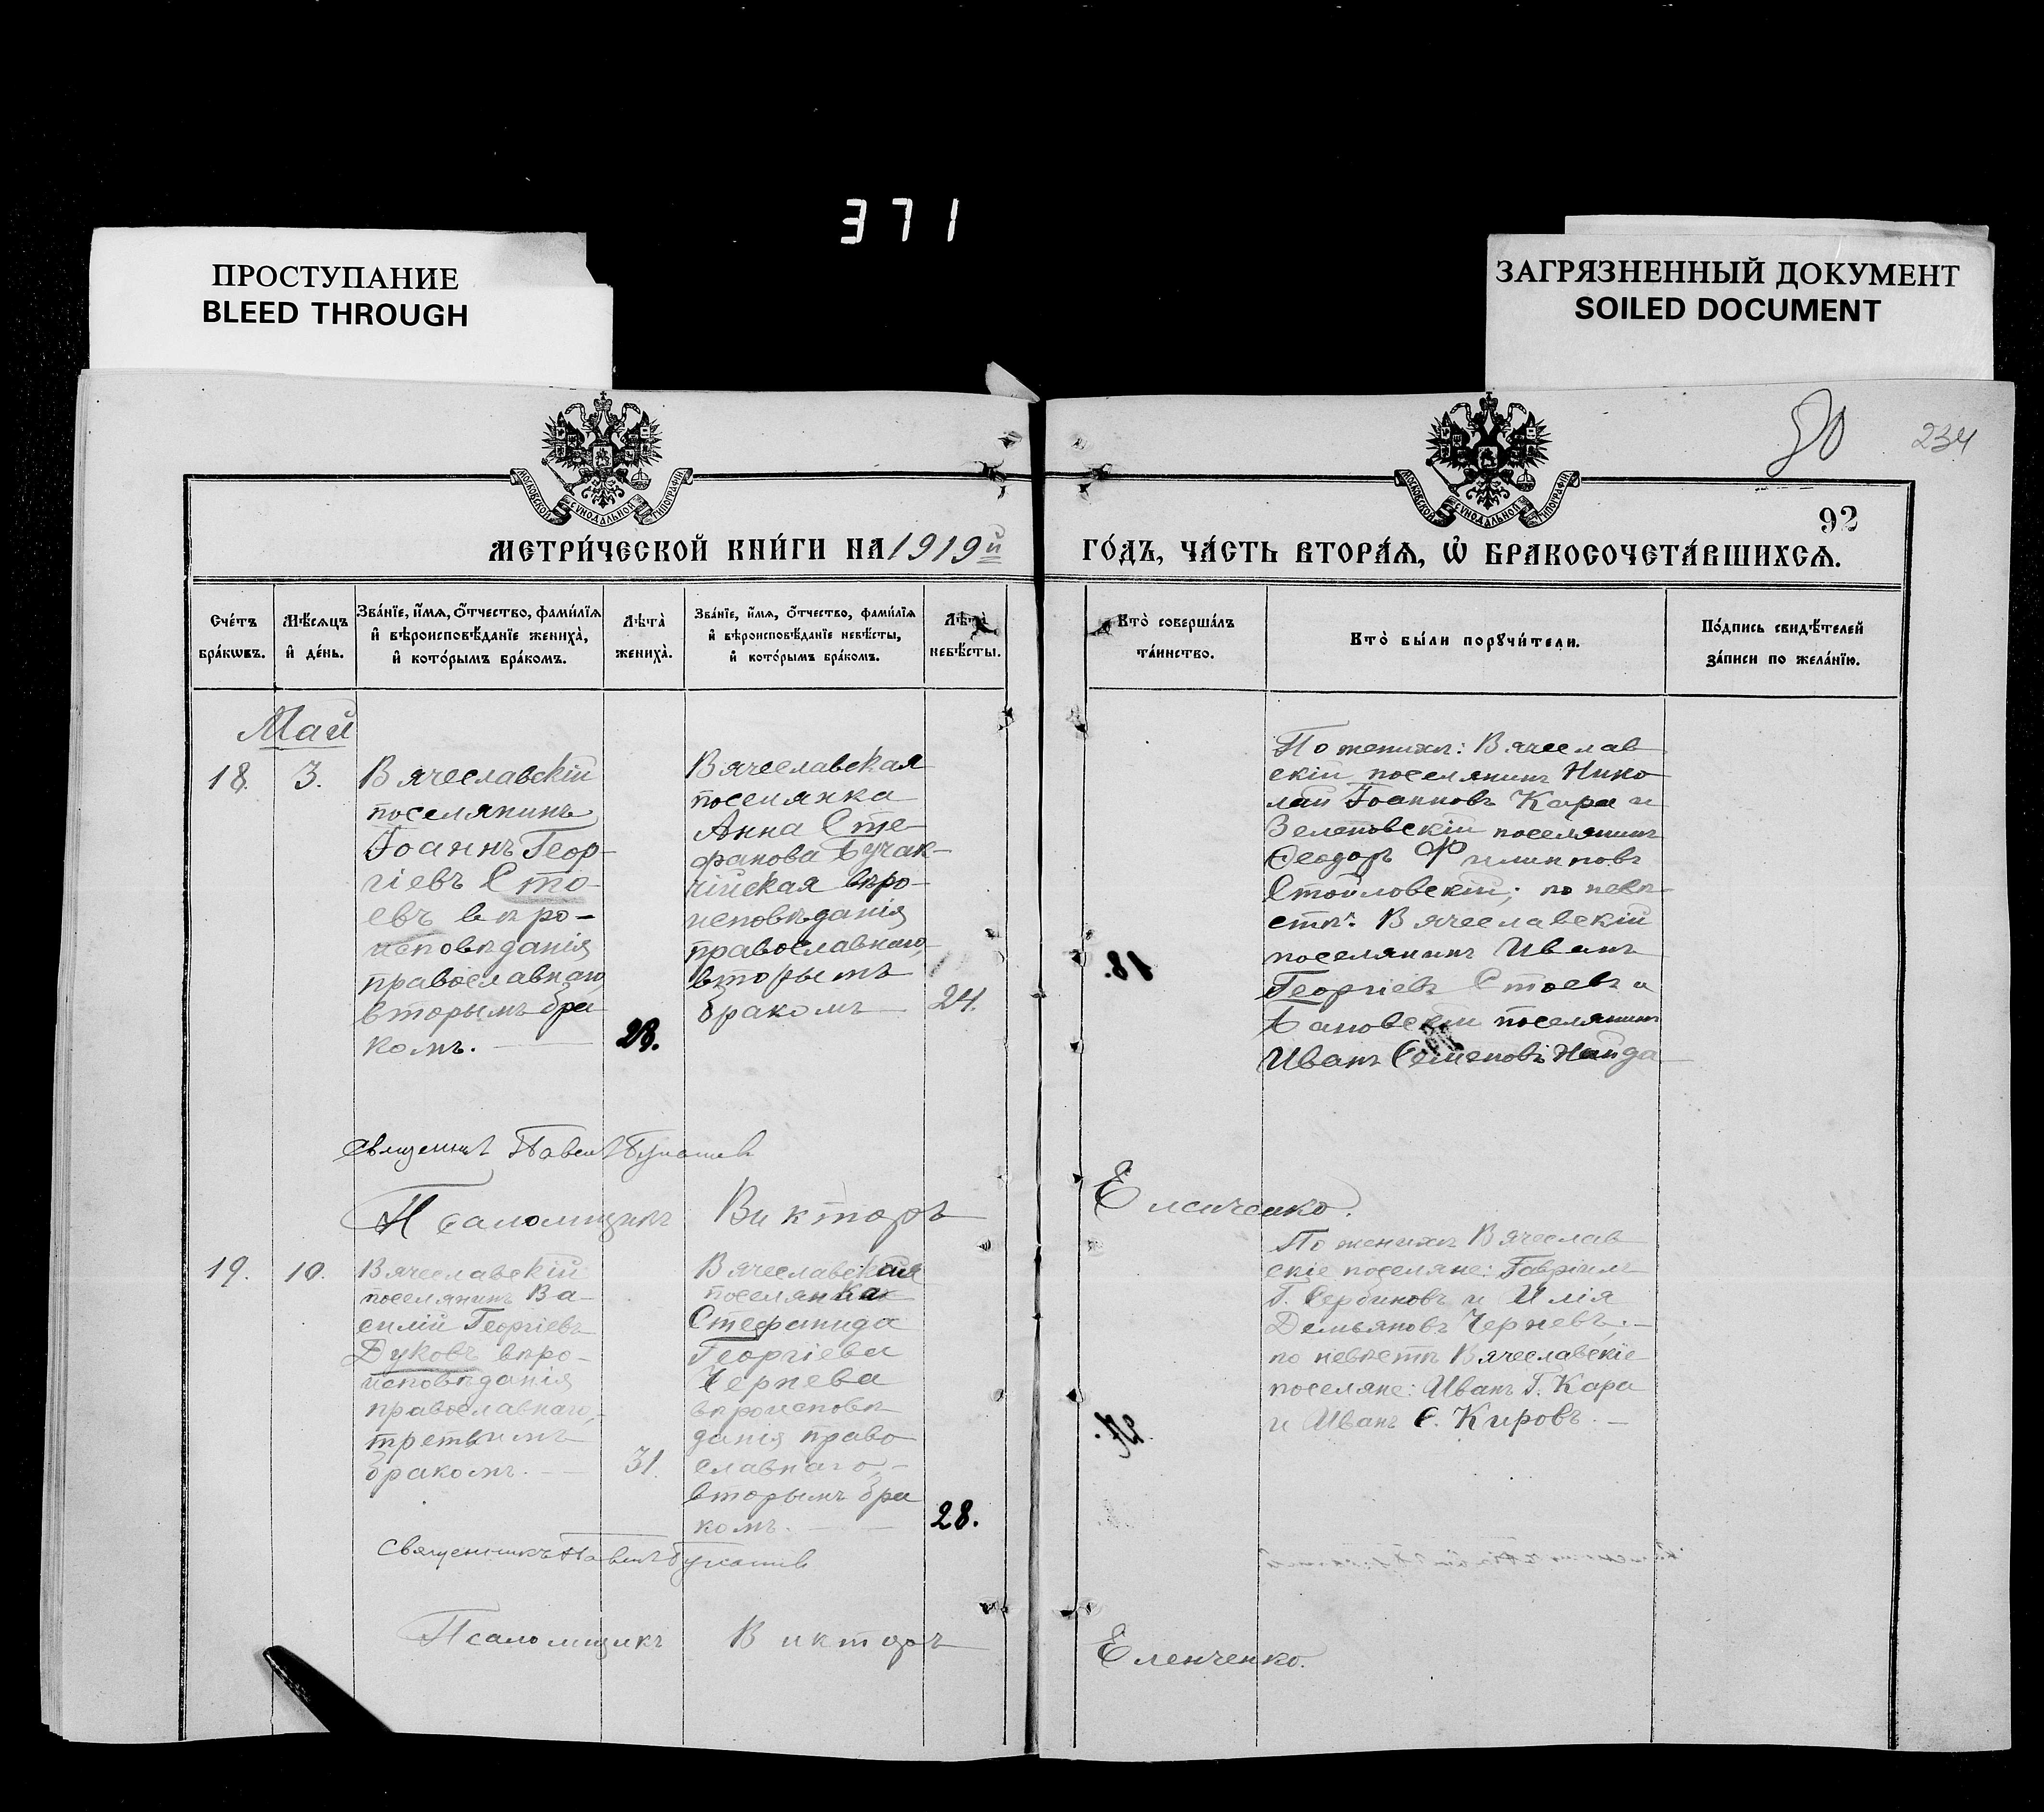 371
ПРОСТУПАНИЕ
BLEED THROUGH
ЗАГРЯЗНЕННЫЙ ДОКУМЕНТ
SOILED DOCUMENT
234
92
МОСКОВСКОЙ СѴНОДАЛЬНОЙ ТИПОГРАФІИ
МОСКОВСКОЙ СѴНОДАЛЬНОЙ ТИПОГРАФІИ
МЕТРИ́ЧЕСКОЙ КНИ́ГИ НА 1919й
ГО́ДЪ, ЧА́СТЬ ВТОРА́Ѧ, Ѡ҆ БРАКОСОЧЕТА́ВШИХСѦ.
Сче́тъ
бра́кѡвъ.
Мѣ́сяцъ
и҆ де́нь.
Зва́нїе, и҆́мѧ, ѻ҆́тчество, фами́лїѧ
и҆ вѣроисповѣ́данїе жениха̀,
и҆ кото́рымъ бра́комъ.
Лѣ́та̀
жениха̀.
Зва́нїе, и҆́мѧ, ѻ҆́тчество, фами́лїѧ
и҆ вѣроисповѣ́данїе невѣ́сты,
и҆ кото́рымъ бра́комъ.
Лѣ́та̀
невѣ́сты.
Кто̀ соверша́лъ
та́инство.
Кто̀ бы́ли порꙋчи́тели.
По́дпись свидѣ́телей
за́писи по жела́нїю.
Май
18.
3.
Вячеславскій
поселянинъ
Іоаннъ Геор-
гіевъ Сто-
евъ вѣро-
исповѣданія
православнаго
вторымъ бра
комъ.
23.
Вячеславская
поселянка
Анна Сте-
фанова Бучак-
чійская вѣро-
исповѣданія
православнаго,
вторымъ
бракомъ
24.
18.
По женихѣ: Вячеслав
скій поселянинъ Нико
лай Іоанновъ Кара и
Зеленовскій поселянинъ
Ѳеодоръ Филипповъ
Стойловскій; по невѣ-
стѣ: Вячеславскій
поселянинъ Иванъ
Георгіевъ Стоевъ и
Бановскій поселянинъ
Иванъ Семеновъ Найда
Священникъ Павелъ
Псаломщикъ Викторъ
Еленченко.
19.
10.
Вячеславскій
поселянинъ Ва-
силій Георгіевъ
Дуковъ вѣро-
исповѣданія
православнаго,
третьимъ
бракомъ.
31.
Вячеславская
поселянка
Стефанида
Георгіева
Чернева
вѣроисповѣ
данія право
славнаго,-
вторымъ бра
комъ.
28.
По женихѣ Вячеслав
скіе поселяне: Гавріилъ
Г. Сербиновъ и Илія
Демьяновъ Черневъ;-
по невѣстѣ Вячеславскіе
поселяне: Иванъ Г. Кара
и Иванъ С. Кировъ.
Священникъ Павелъ
Псаломщикъ Викторъ
Еленченко.